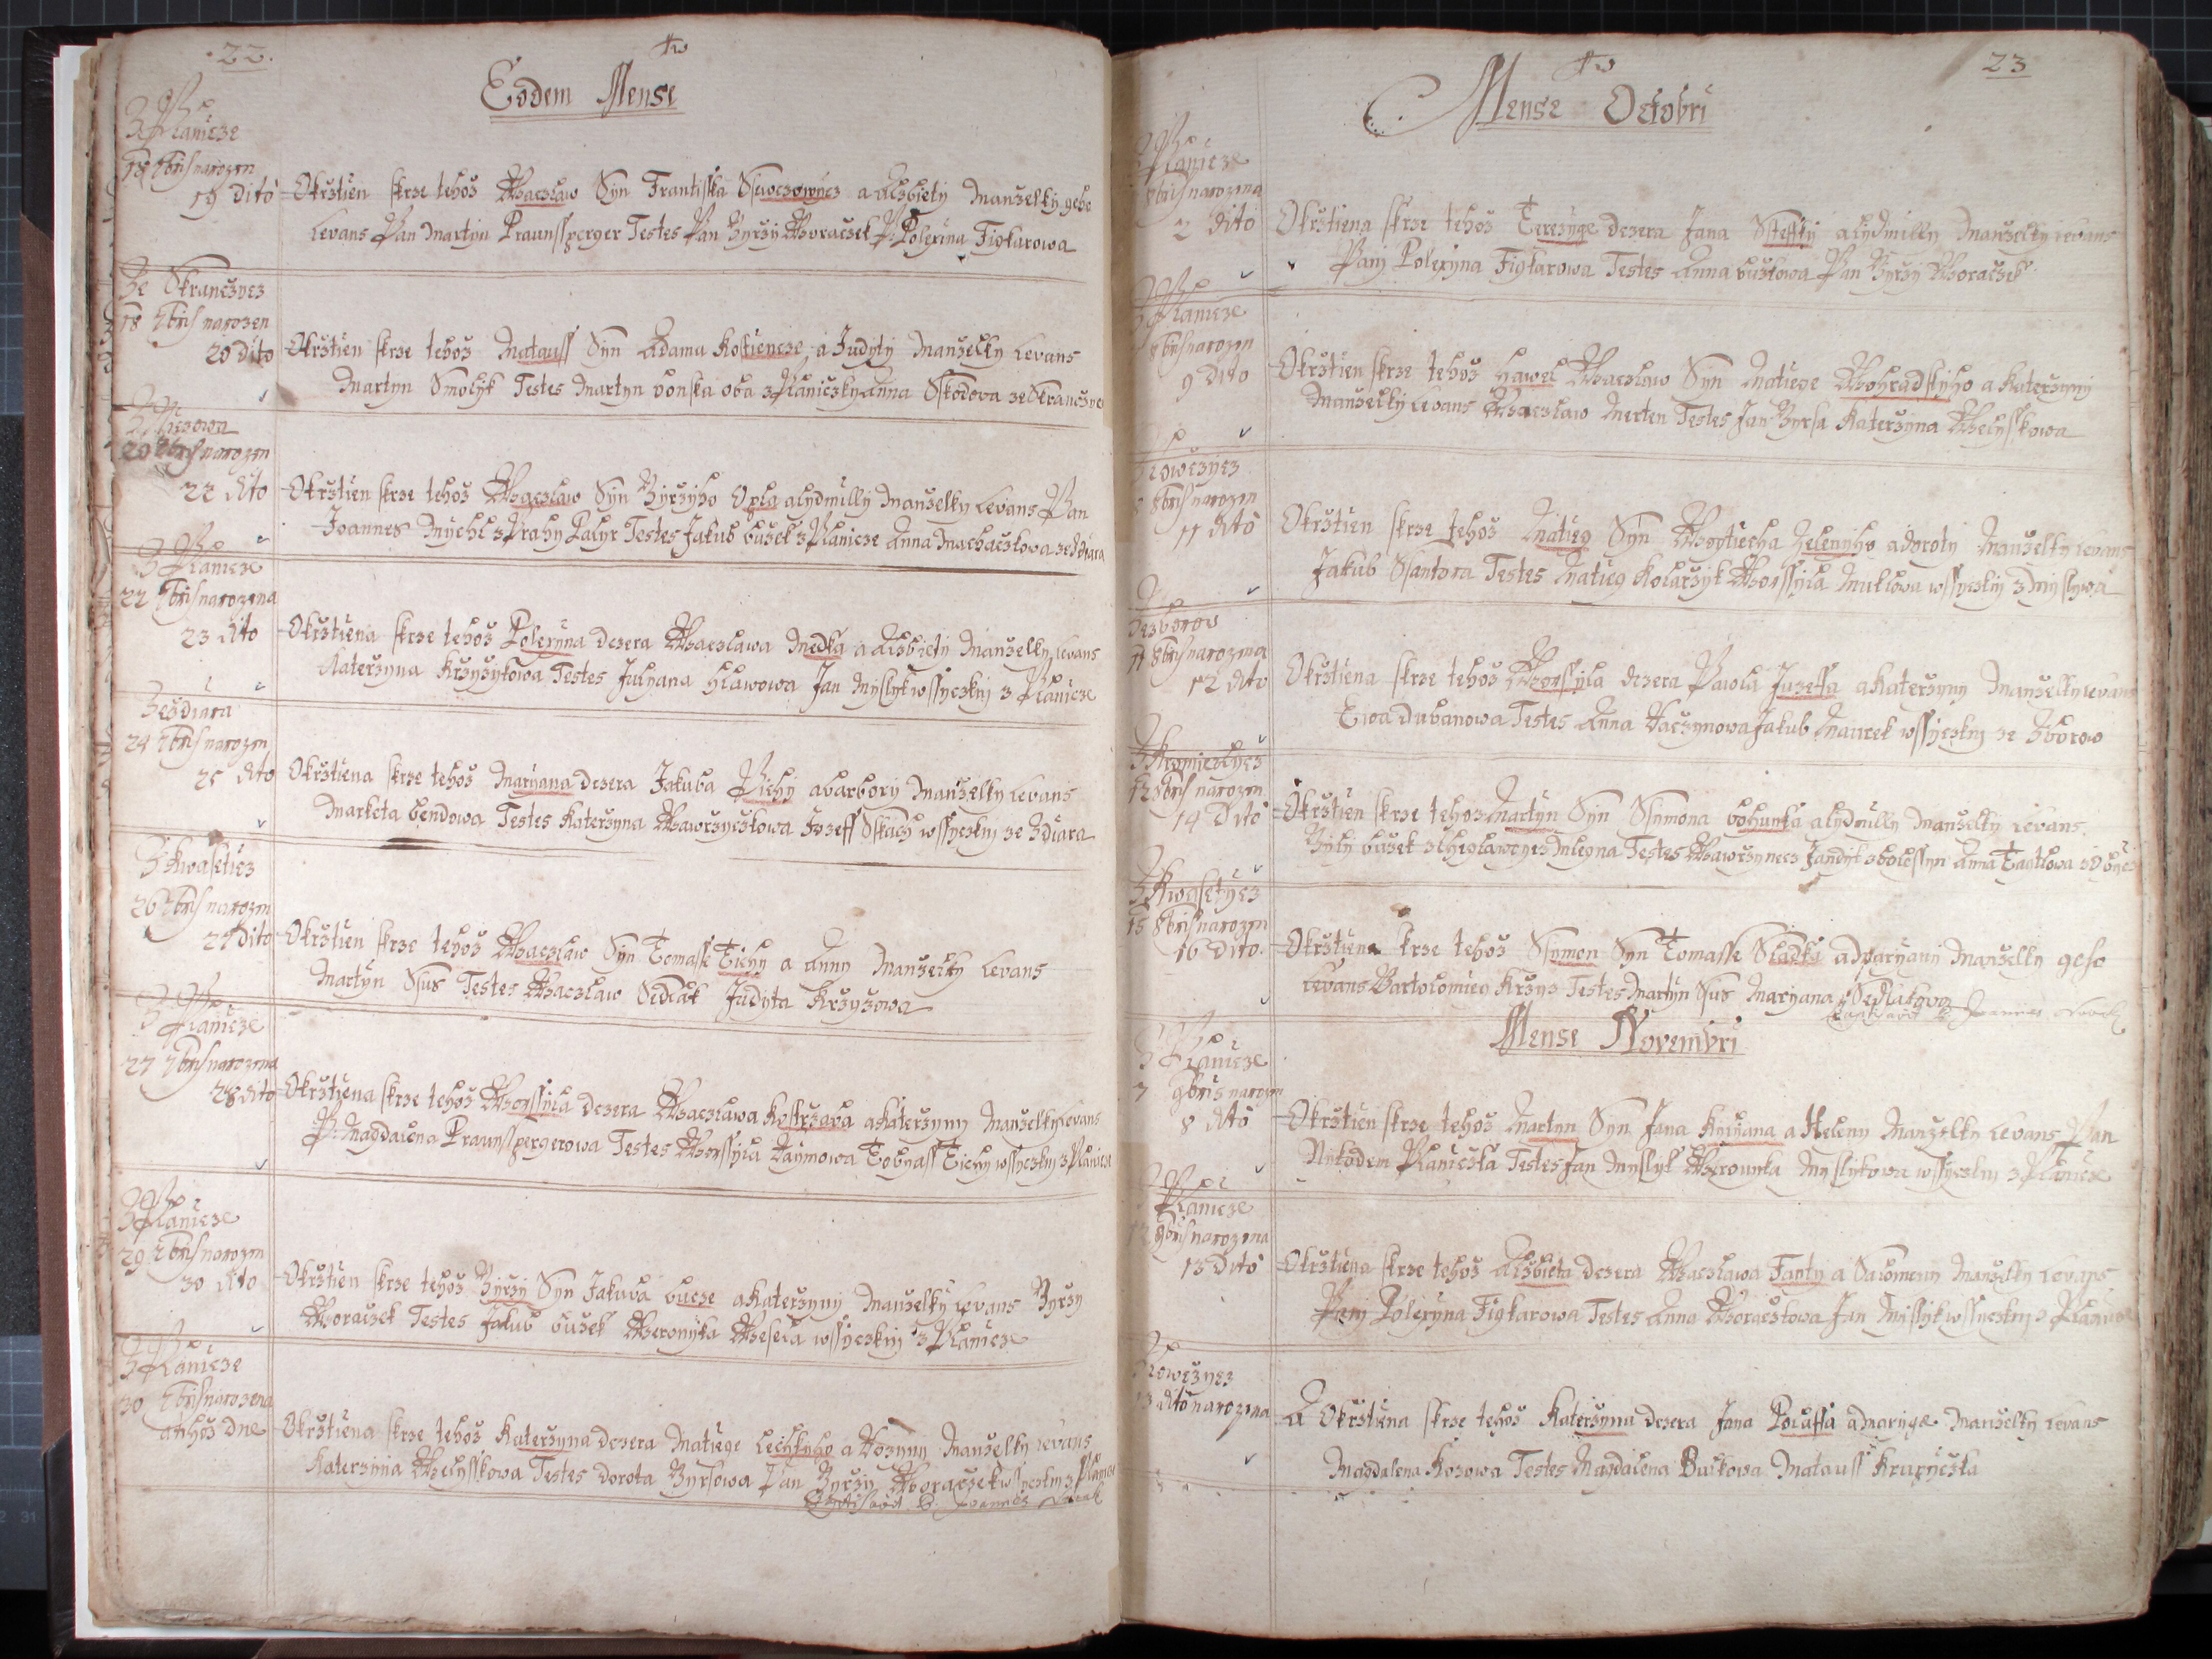 22.
Eodem Mense
Z Planicze
18 7bris narozen
19 Dito Okrztien skrze tehoz Waczlaw Syn Frantisska Ssewczowicz a Alzbiety Manzelky geho
Levans Pan Martyn Praunssperger Testes Pan Girzy Woraczek P: Polexina Figkarowa
Ze Skranczycz
18 7bris narozen
20 Dito Okrztien skrze tehoz Matauss Syn Adama Kostiencze, a Judyty Manzelky Levans
Martyn Smolyk Testes Martyn Vonska oba z Planiczky Anna Sskodova ze Skranczycz
20 7bris narozen
22 dito Okrztien skrze tehoz Waczlaw Syn Girzyho Opla a Lydmilly Manzelky Levans Pan
Joannes Mychl z Prahy Palyr Testes Jakub Bussek z Planicze Anna Machaczkowa ze Zdiara
Z Planicze
22 7bris narozena
23 dito Okrztiena skrze tehoz Polexyna dczera Waczlawa Medka a Alzbiety Manzelky Levans
Katerzyna Krzyzykowa Testes Julyana Hlawowa Jan Myslyk wssyczkny z Planicze
Ze Zdiara
24 7bris narozen
25 dito Okrztiena skrze tehoz Maryana dczera Jakuba Pichy a Barbory Manzelky Levans
Marketa Bendowa Testes Katerzyna Wawrzyczkowa Jozeff Sskach wssyczkny ze Zdiara
Z Kwaseticz
26 7bris narozen
27 Dito Okrztien skrze tehoz Waczlaw Syn Tomasse Tichy a Anny Manzelky Levans
Martyn Ssus Testes Waczlaw Sedlak Judyta Krzyzowa
Z Planicze
27 7bris narozena
28 dito Okrztiena skrze tehoz Worssyla dczera Waczlawa Kostrzaba a Katerzyny Manzelky Levans
P: Magdalena Praunsspergerowa Testes Worssyla Haymowa Tobyass Tichy wssyczkny z Planicze
Z Planicze
29 7bris narozen
30 dito Okrztien skrze tehoz Girzy Syn Jakuba Bucze a Katerzyny Manzelky Levans Girzy
Woraczek Testes Jakub Bussek Weronyka Wesela wssyczkny z Planicze
Z Planicze
30 7bris narozena
a tehoz dne Okrztiena skrze tehoz Katerzyna dczera Matiege Lechkyho a Rozyny Manzelky Levans
Katerzina Welysskowa Testes Dorota Gyrsowa Pan Girzy Woraczek wssyczkny z Planicze
23
Mense Octobri
Planicze
8bris narozena
2 dito Okrztiena skrze tehoz Terezyge dczera Jana Steffky a Lydmilly Manzelky Levans
Pany Polexyna Figkarowa Testes Anna Busskowa Pan Girzy Woraczek
Planicze
8bris narozen
9 Dito Okrztien skrze tehoz Hawel Waczlaw Syn Matiege Wohradskyho a Katerzyny
Manzelky Levans Waczlaw Merten Testes Jan Gyrsa Katerzyna Welysskowa
8bris narozen
11 dito Okrztien skrze tehoz Matieg Syn Wogtiecha Zelenyho a Doroty Manzelky Levans
Jakub Ssantora Testes Matieg Kolarzyk Worssyla Mullowa wssyczkny z Myslywa
Ze Zborow
11 8bris narozena
12 dito Okrztiena skrze tehoz Worssyla dczera Pawla Juzeffa a Katerzyny Manzelky Levans
Ewa Dubanowa Testes Anna Vaczynowa Jakub Maurek wssyczkny ze Zborow
12 8bris narozen
14 Dito Okrztien skrze tehoz Martyn Syn Ssymona Bohunka a Lydmilly Manzelky Levans
Gyly Bussek z Mlegna Testes Wawrzynecz Jandyk z Bolessyn Anna Tagtlowa
Z Kwasetycz
15 8bris narozen
16 dito. Okrztiena skrze tehoz Ssymon Syn Tomasse Sladka a Maryany Manzelky geho
Levans Bartolomieg Krzyz Testes Martyn Ssus Maryana Sedlakova
Mense Novembri
Z Planicze
7 9bris narozen
8 dito Okrztien skrze tehoz Martyn Syn Jana Kylyana a Heleny Manzelky Levans Pan
Nykodem Planiczka Testes Jan Myslyk Werounka Myslykowa wssyczkny z Planicze
Planicze
12 9bris narozena
13 Dito Okrztiena skrze tehoz Alzbieta dczera Waczlawa Fanty a Salomeny Manzelky Levans
Pany Polexyna Figkarowa Testes Anna Woraczkowa Jan Myslyk wssyczkny z Planicze
13 dito narozena A Okrztiena skrze tehoz Katerzyna dczera Jana Polassa a Maryge Manzelky Levans
Magdalena Kozowa Testes Magdalena Bulkowa Matauss Krupyczka